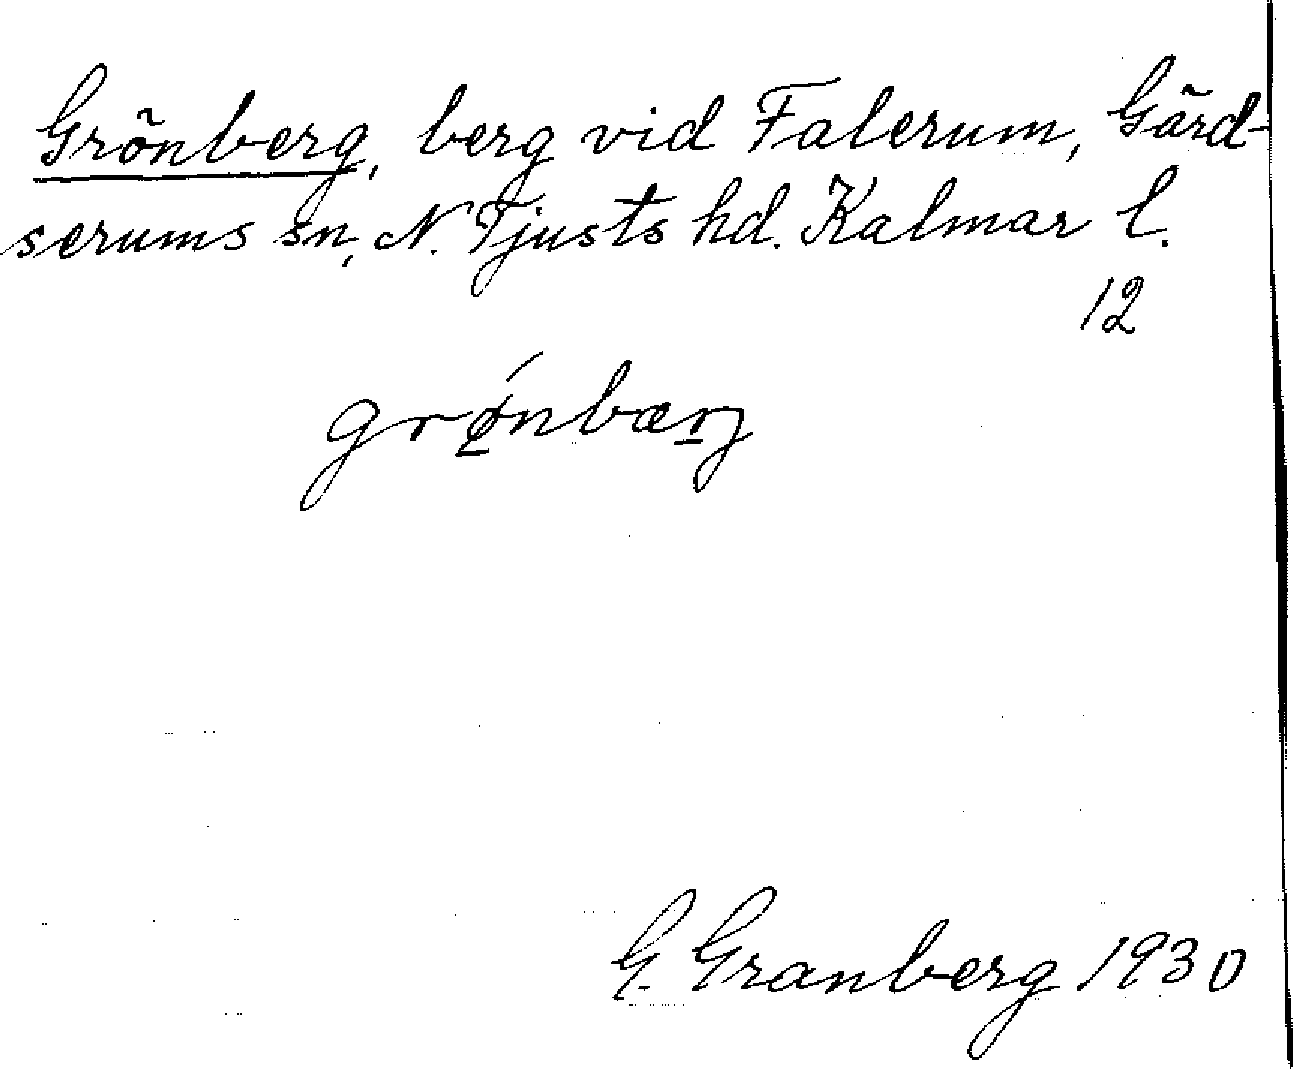 Grönberg, berg vid Falerum, Gärd-
serums sn, N. Tjusts hd. Kalmar l.
12
grǿ̱nbær̠j
G. Granberg 1930